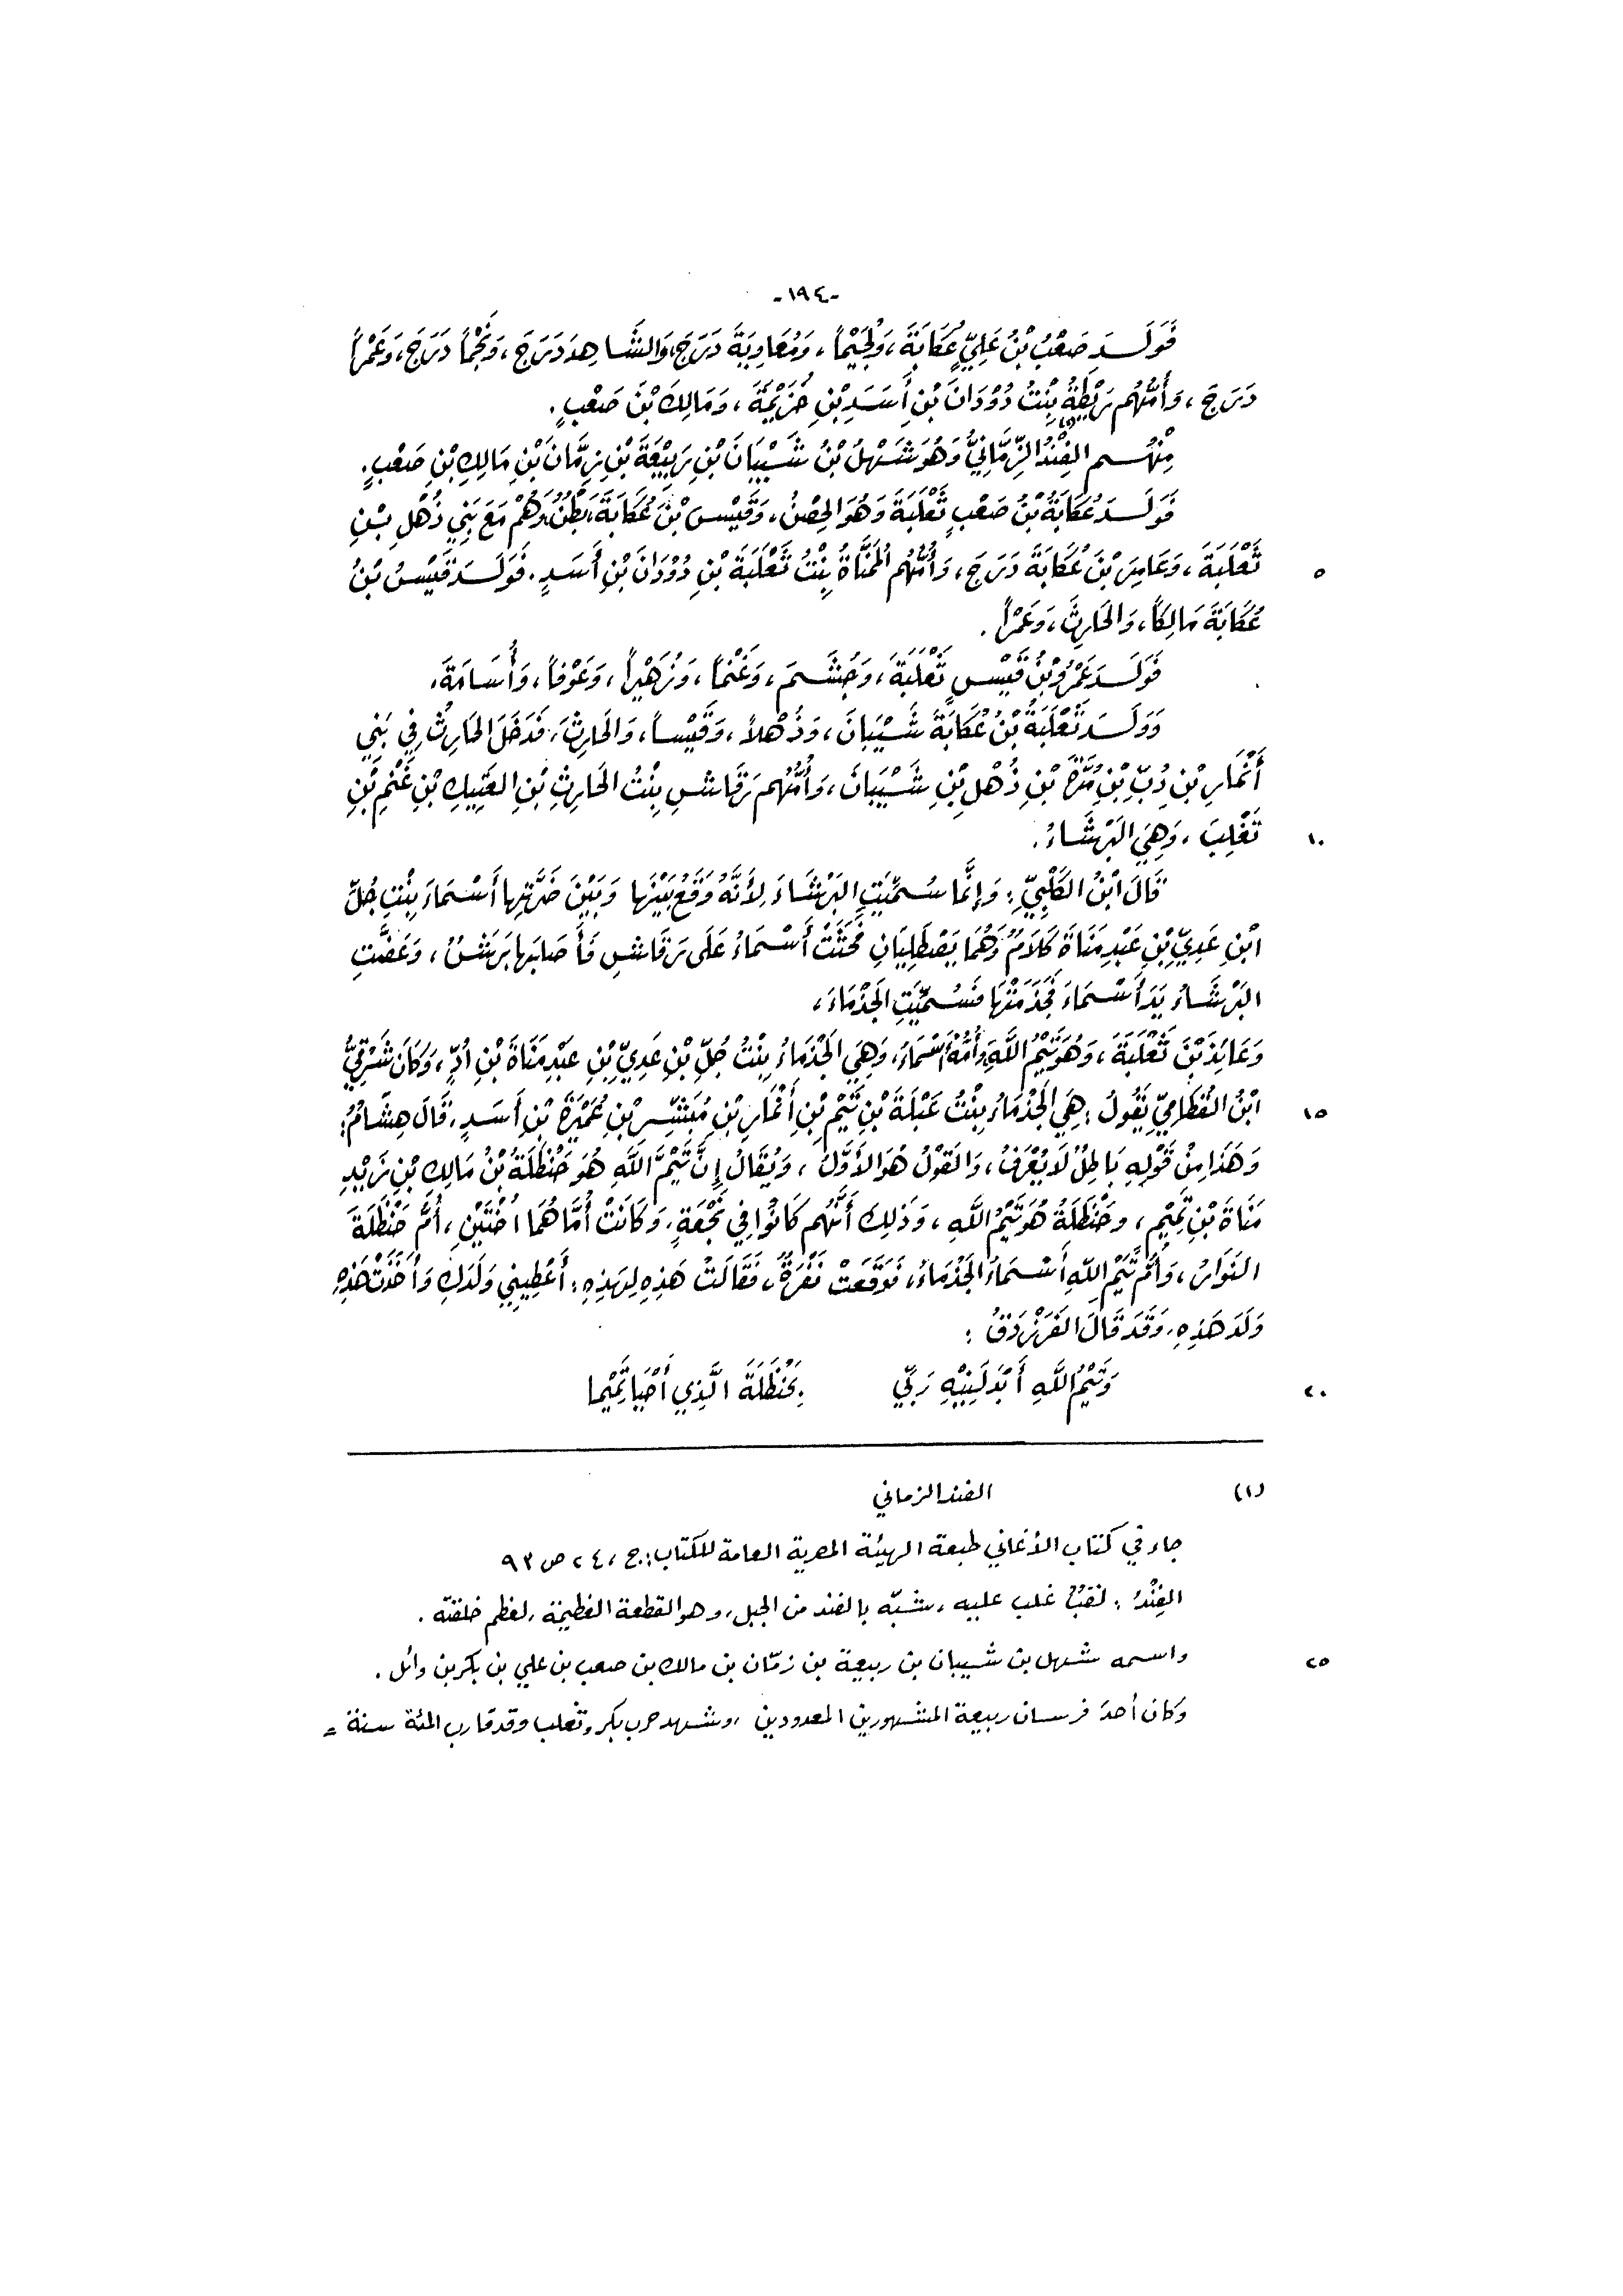 -١٩٤-
فَوَلَدَ صَعْبُ بْنُ عَلِيٍّ عُكَابَةَ، وَلُجَيْماً، وَمُعَاوِيَةَ دَرَجَ، وَالشَّاهِدَ دَرَجَ، وَنَجْماً دَرَجَ، وَعَمْراً
دَرَجَ، وَأُمُّهُم رَيْطَةُ بِنْتُ دُوْدَانَ بْنِ أَسَدِ بْنِ خُزَيْمَةَ، وَمَالِكَ بْنَ صَعْبٍ.
مِنْهُم الفِنْدُ (١) الزِّمَّانِيُّ وَهُوَ شَهْلُ بْنُ شَيْبَانَ بْنِ رَبِيْعَةَ بْنِ زِمَّانَ بْنِ مَالِكِ بْنِ صَعْبٍ.
فَوَلَدَ عُكَابَةُ بْنُ صَعْبٍ ثَعْلَبَةَ وَهُوَ الحِصْنُ، وَقَيْسَ بْنَ عُكَابَةَ، بَطْنٌ، وَهُمْ مَعَ بَنِي ذُهْلِ بْنِ
ثَعْلَبَةَ، وَعَامِرَ بْنَ عُكَابَةَ دَرَجَ، وَأُمُّهُم المُمَنَّاةُ بِنْتُ ثَعْلَبَةَ بْنِ دُوْدَانَ بْنِ أَسَدٍ. فَوَلَدَ قَيْسُ بْنُ ٥
عُكَابَةَ مَالِكاً، وَالحَارِثَ، وَعَمْراً.
فَوَلَدَ عَمْرُو بْنُ قَيْسٍ ثَعْلَبَةَ، وَجُشَمَ، وَغَنْماً، وَزُهَيْراً، وَعَوْفاً، وَأُسَامَةَ،
وَوَلَدَ ثَعْلَبَةُ بْنُ عُكَابَةَ شَيْبَانَ، وَذُهْلاً، وَقَيْساً، وَالحَارِثَ، فَدَخَلَ الحَارِثُ فِي بَنِي
أَنْمَارِ بْنِ دُبِّ بْنِ مُرَّةَ بْنِ ذُهْلِ بْنِ شَيْبَانَ، وَأُمُّهُم رَقَاشِ بِنْتُ الحَارِثِ بْنِ العَتِيكِ بْنِ غَنْمِ بْنِ
تَغْلِبَ، وَهِيَ البَرْشَاءُ. ١٠
قَالَ ابْنُ الكَلْبِيِّ: وَإِنَّمَا سُمِّيَتِ البَرْشَاءَ لِأَنَّهُ وَقَعَ بَيْنَهَا وَبَيْنَ ضَرَّتِهَا أَسْمَاءَ بِنْتِ جُلِّ
ابْنِ عَدِيِّ بْنِ عَبْدِ مَنَاةَ كَلَامٌ وَهُمَا يَصْطَلِيَانِ فَحَثَتْ أَسْمَاءُ عَلَى رَقَاشِ فَأَصَابَهَا بَرَشٌ، وَعَضَّتِ
البَرْشَاءُ يَدَ أَسْمَاءَ فَجَذَمَتْهَا فَسُمِّيَتِ الجَذْمَاءَ،
وَعَائِذَ بْنَ ثَعْلَبَةَ، وَهُوَ تَيْمُ اللَّهِ، وَأُمُّهُ أَسْمَاءُ، وَهِيَ الجَذْمَاءُ بِنْتُ جُلِّ بْنِ عَدِيِّ بْنِ عَبْدِ مَنَاةَ بْنِ أُدٍّ، وَكَانَ شَرْقِيُّ
ابْنُ القُطَامِيِّ يَقُولُ: هِيَ الجَذْمَاءُ بِنْتُ عَبْلَةَ بْنِ تَيْمِ بْنِ أَنْمَارِ بْنِ مُبَشِّرِ بْنِ عُمَيْرَةَ بْنِ أَسَدٍ، قَالَ هِشَامٌ: ١٥
وَهَذَا مِنْ قَوْلِهِ بَاطِلٌ لَا يُعْرَفُ، وَالقَوْلُ هُوَ الأَوَّلُ، وَيُقَالُ إِنَّ تَيْمَ اللَّهِ هُوَ حَنْظَلَةُ بْنُ مَالِكِ بْنِ زَيْدِ
مَنَاةَ بْنِ تَمِيْمٍ، وحَنْظَلَةُ هُوَ تَيْمُ اللَّهِ، وَذَلِكَ أَنَّهُم كَانُوا فِي نَجْعَةٍ، وَكَانَتْ أُمَّاهُمَا أُخْتَيْنِ، أُمُّ حَنْظَلَةَ
النَوَارُ، وَأُمُّ تَيْمِ اللَّهِ أَسْمَاءُ الجَذْمَاءُ، فَوَقَعَتْ نَفْرَةٌ، فَقَالَتْ هَذِهِ لِهَذِهِ: أَعْطِينِي وَلَدَكِ وَأَخَذَتْ هَذِهِ
وَلَدَ هَذِهِ، وَقَدْ قَالَ الفَرَزْدَقُ:
وَتَيْمُ اللَّهِ أَبْدَلَنِيْهِ رَبِّي بِحَنْظَلَةَ الَّذِي أَحْيَا تَمِيْما ٢٠
(١) الفند الزماني
جاء في كتاب الأغاني طبعة الهيئة المصرية العامة للكتاب: ج، ٢٤ ص ٩٣
الفِنْدُ: لقبٌ غلب عليه، شبّه بالفند من الجبل، وهو القطعة العظيمة، لعظم خلقته.
واسمه شهل بن شيبان بن ربيعة بن زمّان بن مالك بن صعب بن علي بن بكر بن وائل. ٢٥
وكان أحدَ فرسان ربيعة المشهورين المعدودين، وشهد حرب بكر وتغلب وقد قارب المئة سنة =